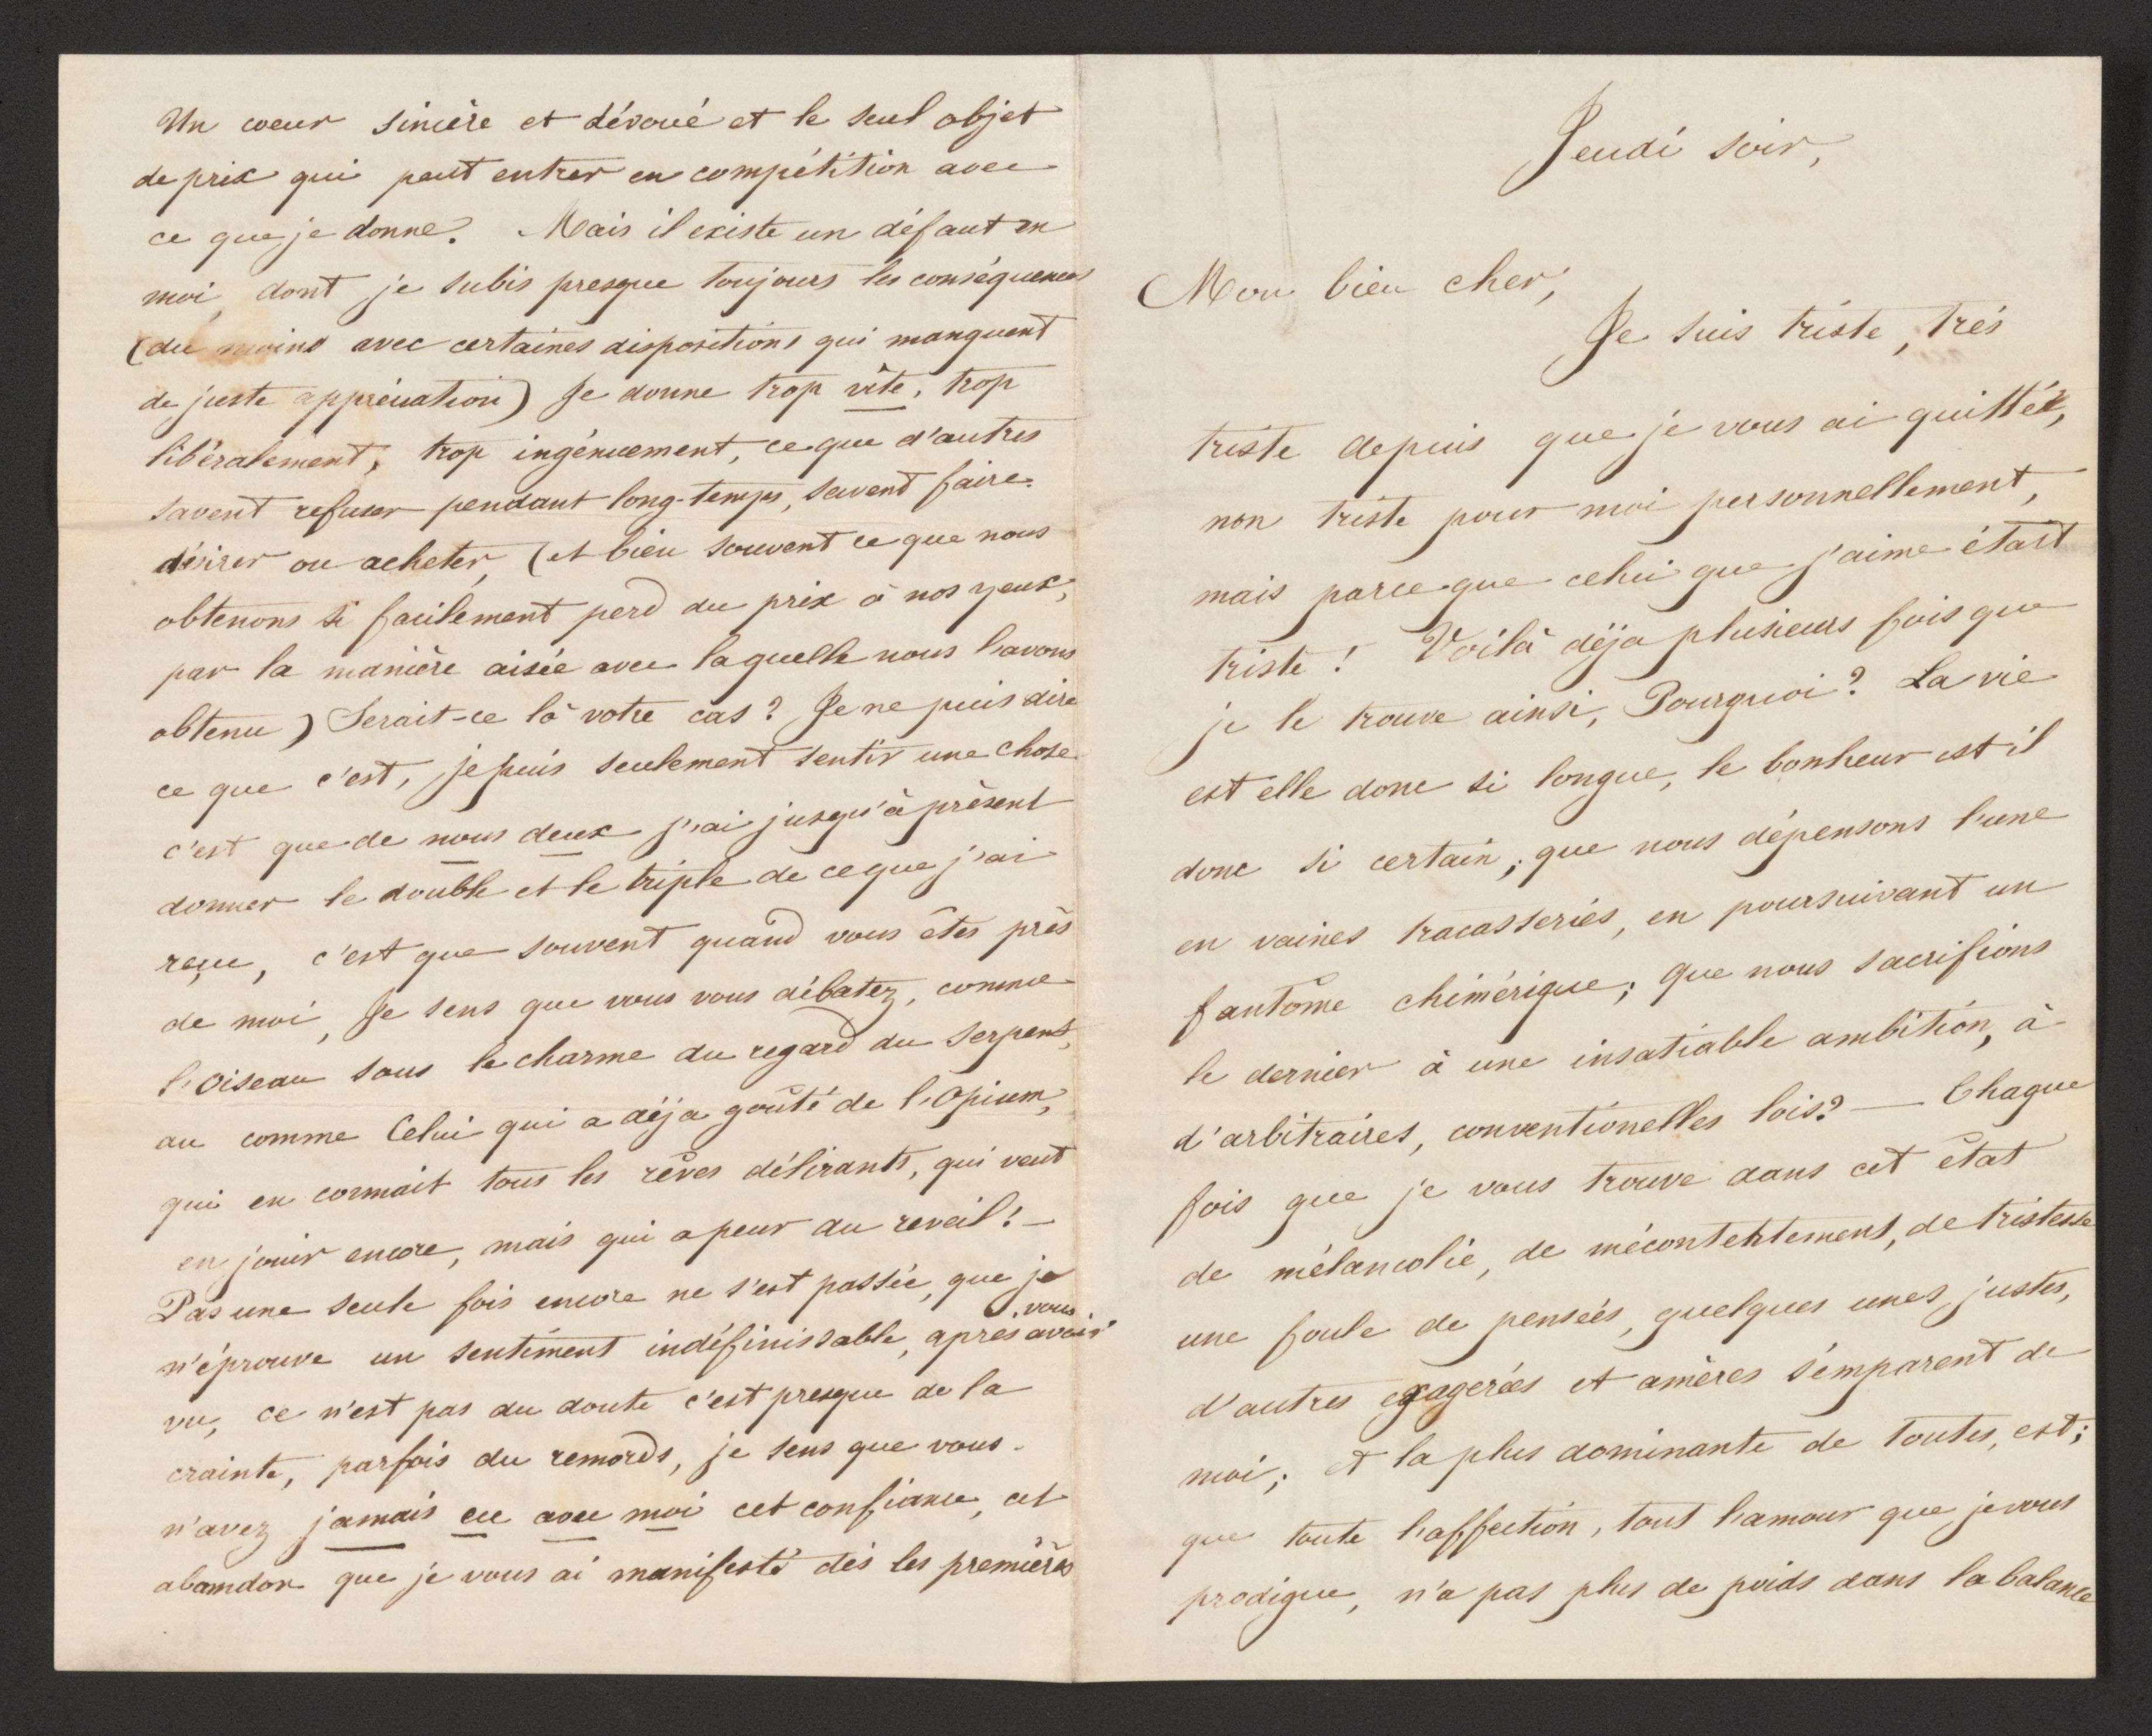 Jeudi soir,
Mon bien cher,
Je suis triste, très
triste depuis que je vous ai quitté,
non triste pour moi personnellement,
mais parceque celui que j'aime était
triste! Voilà déja plusieurs fois que
je le trouve ainsi, Pourquoi? La vie
est elle donc si longue, le bonheur est il
donc si certain, que nous dépensons l'une
en vaines tracasseries, en poursuivant un
fantôme chimérique; que nous sacrifions
le dernier à une insatiable ambition, à
d'arbitraires, conventionelles lois? — Chaque
fois que je vous trouve dans cet état
de mélancolie, de mécontentement, de tristesse
une foule de pensées, quelques unes justes,
d'autres exagerées et amères s'emparent de
moi; et la plus dominante de toutes, est;
que toute l'affection, tout l'amour que je vous
prodigue, n'a pas plus de poids dans la balance
Un coeur sincère et dévoué et le seul objet
de prix qui peut entrer en compétition avec
ce que je donne. Mais il existe un défaut en
moi, dont je subis presque toujours les conséquences
(du moins avec certaines dispositions qui manquent
de juste appréciation) Je donne trop vîte, trop
libéralement, trop ingénuement, ce que d'autres
savent refuser pendant long-temps, savent faire
désirer ou acheter, (et bien souvent ce que nous
obtenons si facilement perd du prix à nos yeux,
par la manière aisée avec laquelle nous l'avons
obtenu) Serait-ce là votre cas? Je ne puis dire
ce que c'est, je puis seulement sentir une chose
c'est que de nous deux j'ai jusqu'à présent
donner le double et le triple de ce que j'ai
reçue, c'est que souvent quand vous êtes près
de moi, Je sens que vous vous débatez, comme
l'oiseau sous le charme du regard du Serpent,
ou comme Celui qui a déja goûté de l'Opium,
qui en connait tous les rêves délirants, qui veut
en jouir encore, mais qui a peur du reveil! —
Pas une seule fois encore ne s'est passée, que je
n'éprouve un sentiment indéfinissable, après vous avoir
vu, ce n'est pas du doute c'est presque de la
crainte, parfois du remords, je sens que vous
n'avez jamais eu avec moi cet confiance, cet
abamdon que je vous ai manifesté dès les premières